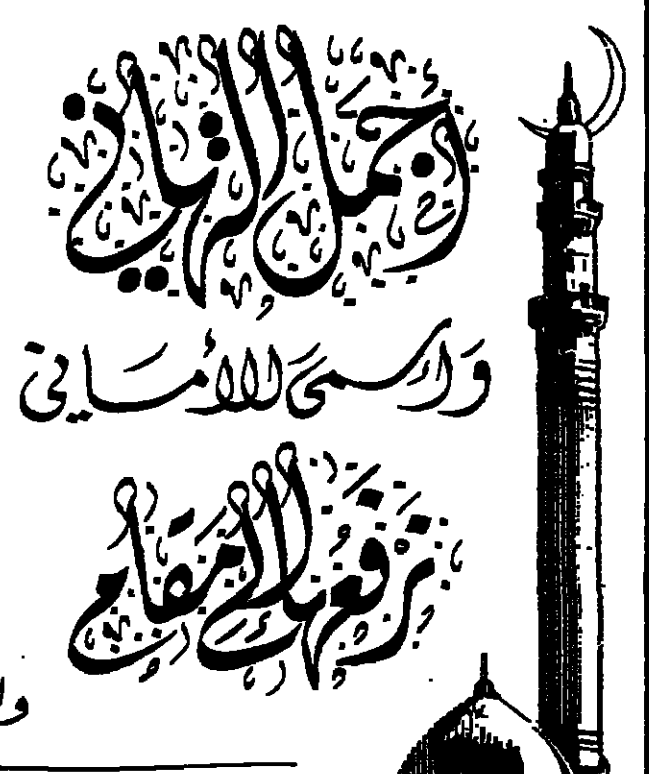 أجمل التهاني
وأسمى الأماني
نرفعها إلى مقام